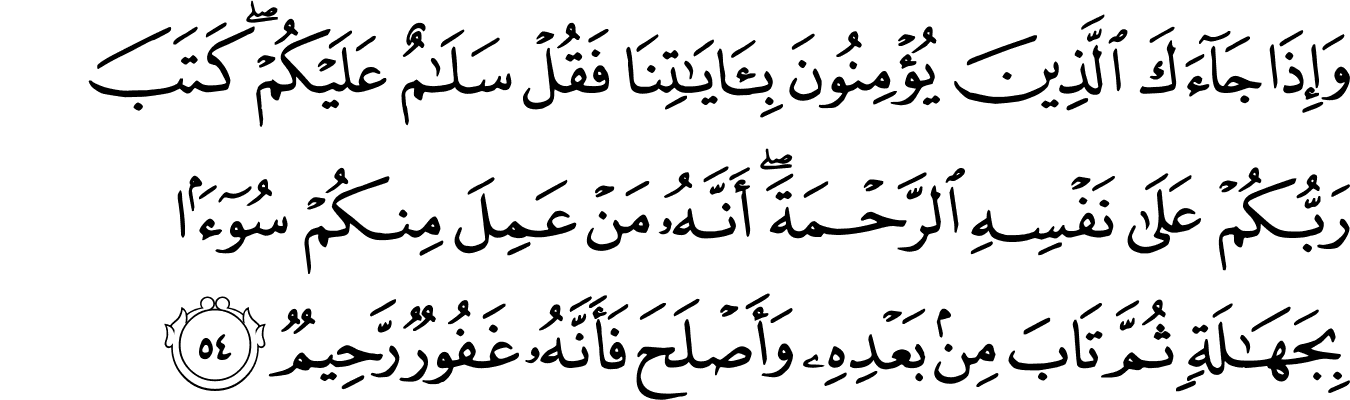 وَإِذَا جَآءَكَ ٱلَّذِينَ يُؤْمِنُونَ بِـَٔايَـٰتِنَا فَقُلْ سَلَـٰمٌ عَلَيْكُمْ ۖ كَتَبَ
رَبُّكُمْ عَلَىٰ نَفْسِهِ ٱلرَّحْمَةَ ۖ أَنَّهُۥ مَنْ عَمِلَ مِنكُمْ سُوٓءًۢا
بِجَهَـٰلَةٍ ثُمَّ تَابَ مِنۢ بَعْدِهِۦ وَأَصْلَحَ فَأَنَّهُۥ غَفُورٌ رَّحِيمٌ ٥٤